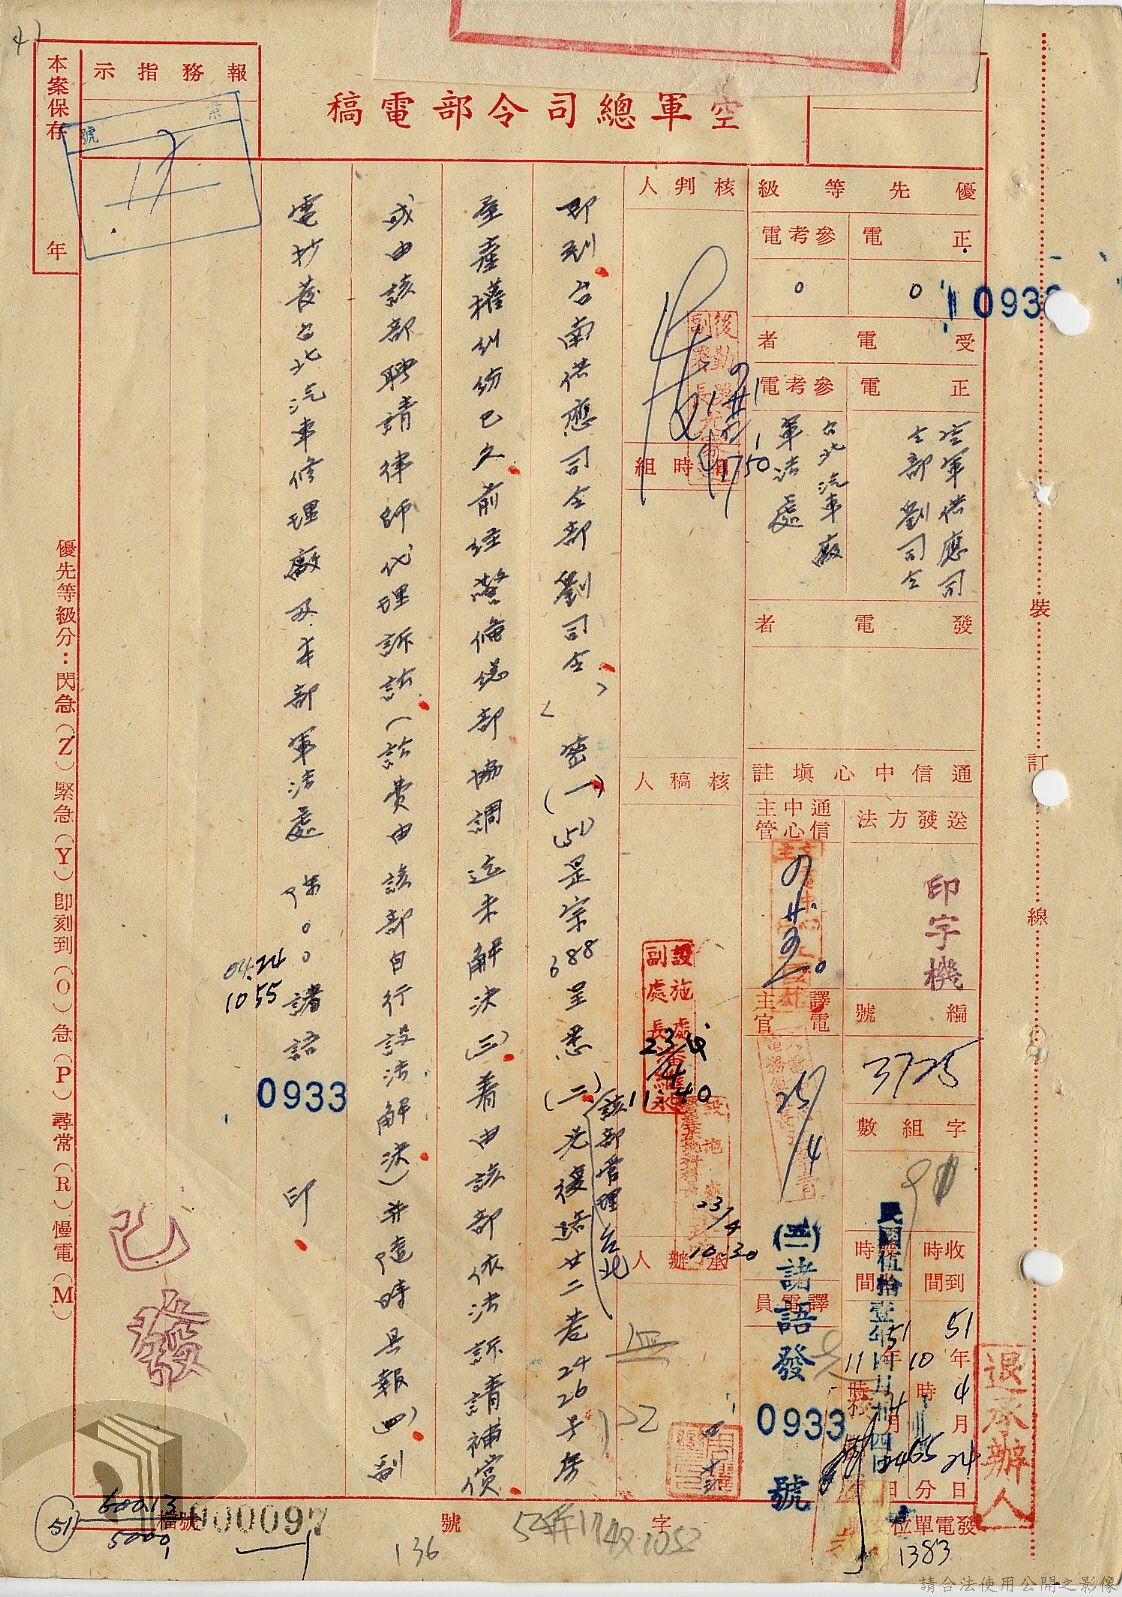 空軍總司令部電稿
優先等級
正電
參考電
0
0
0933
受電者
正電
空軍供應司
令部劉司令
參考電
台北汽車廠
軍法處
發電者
通信中心填註
送發方法
印字機
通信中心主管
編號
3725
譯電主官
25/4
字組數
收到時間
51年4月24日
10時55分
民國伍拾壹年四月廿四日
譯電員
諸語發
0933
號
退承辦人
發電單位
1383
核判人
時組
1750
核稿人
設施處副處長
23/4
11:40
23/4
10:30
承辦人
即到台南供應司令部劉司令
密(一)(51)是宗688呈悉(二)光復路廿二巷24 26号房
該部管理台北
屋產權糾紛已久前經警備總部協調迄未解決(三)着由該部依法訴請補償
或由該部聘請律師代理訴訟(訟費由該部自行設法解決)并隨時具報(四)副
電抄發台北汽車修理廠及本部軍法處 諸語
0933
印
04.24
1055
報務指示
號
17
本案保存
年
優先等級分:閃急(Z)緊急(Y)即刻到(O)急(P)尋常(R)慢電(M)
已發
裝
訂
線
檔號
000097
字
號
136
51
60013
5000
請合法使用公開之影像